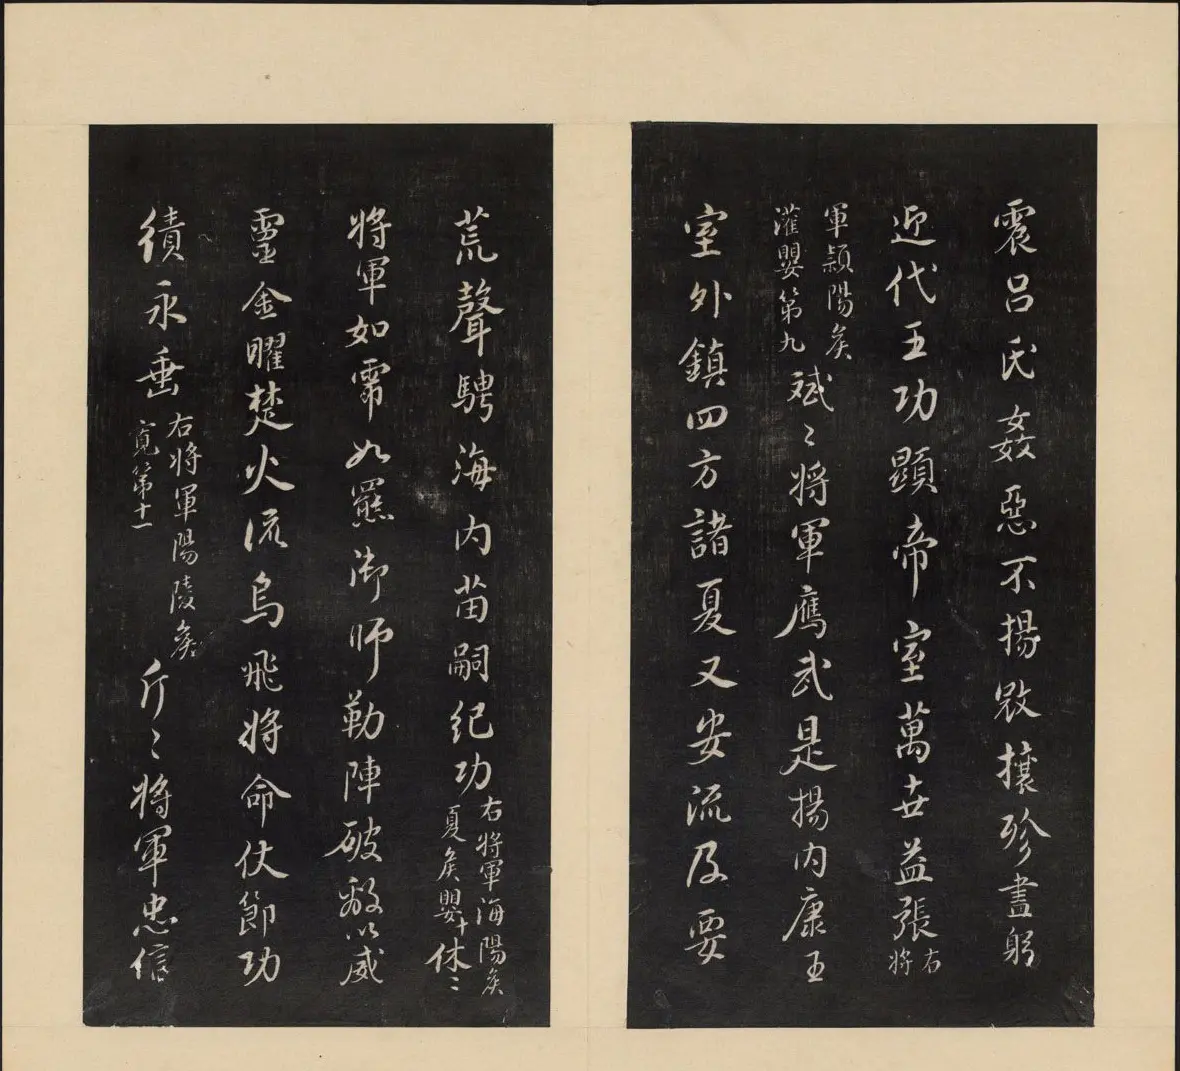 震呂氏姦惡不揚攘殄盡躬
迎代王功顯帝室萬世益張右將
軍潁陽侯灌嬰第九斌〻將軍鷹武是揚內康王
室外鎮四方諸夏乂安流及要
荒聲騁海內苗嗣紀功右將軍海陽侯夏侯嬰十休〻
將軍如虎如羆御師勒陣破敵以威
靈金曜楚火流烏飛將命仗節功
績永垂右將軍陽陵侯寬第十一斤〻將軍忠信